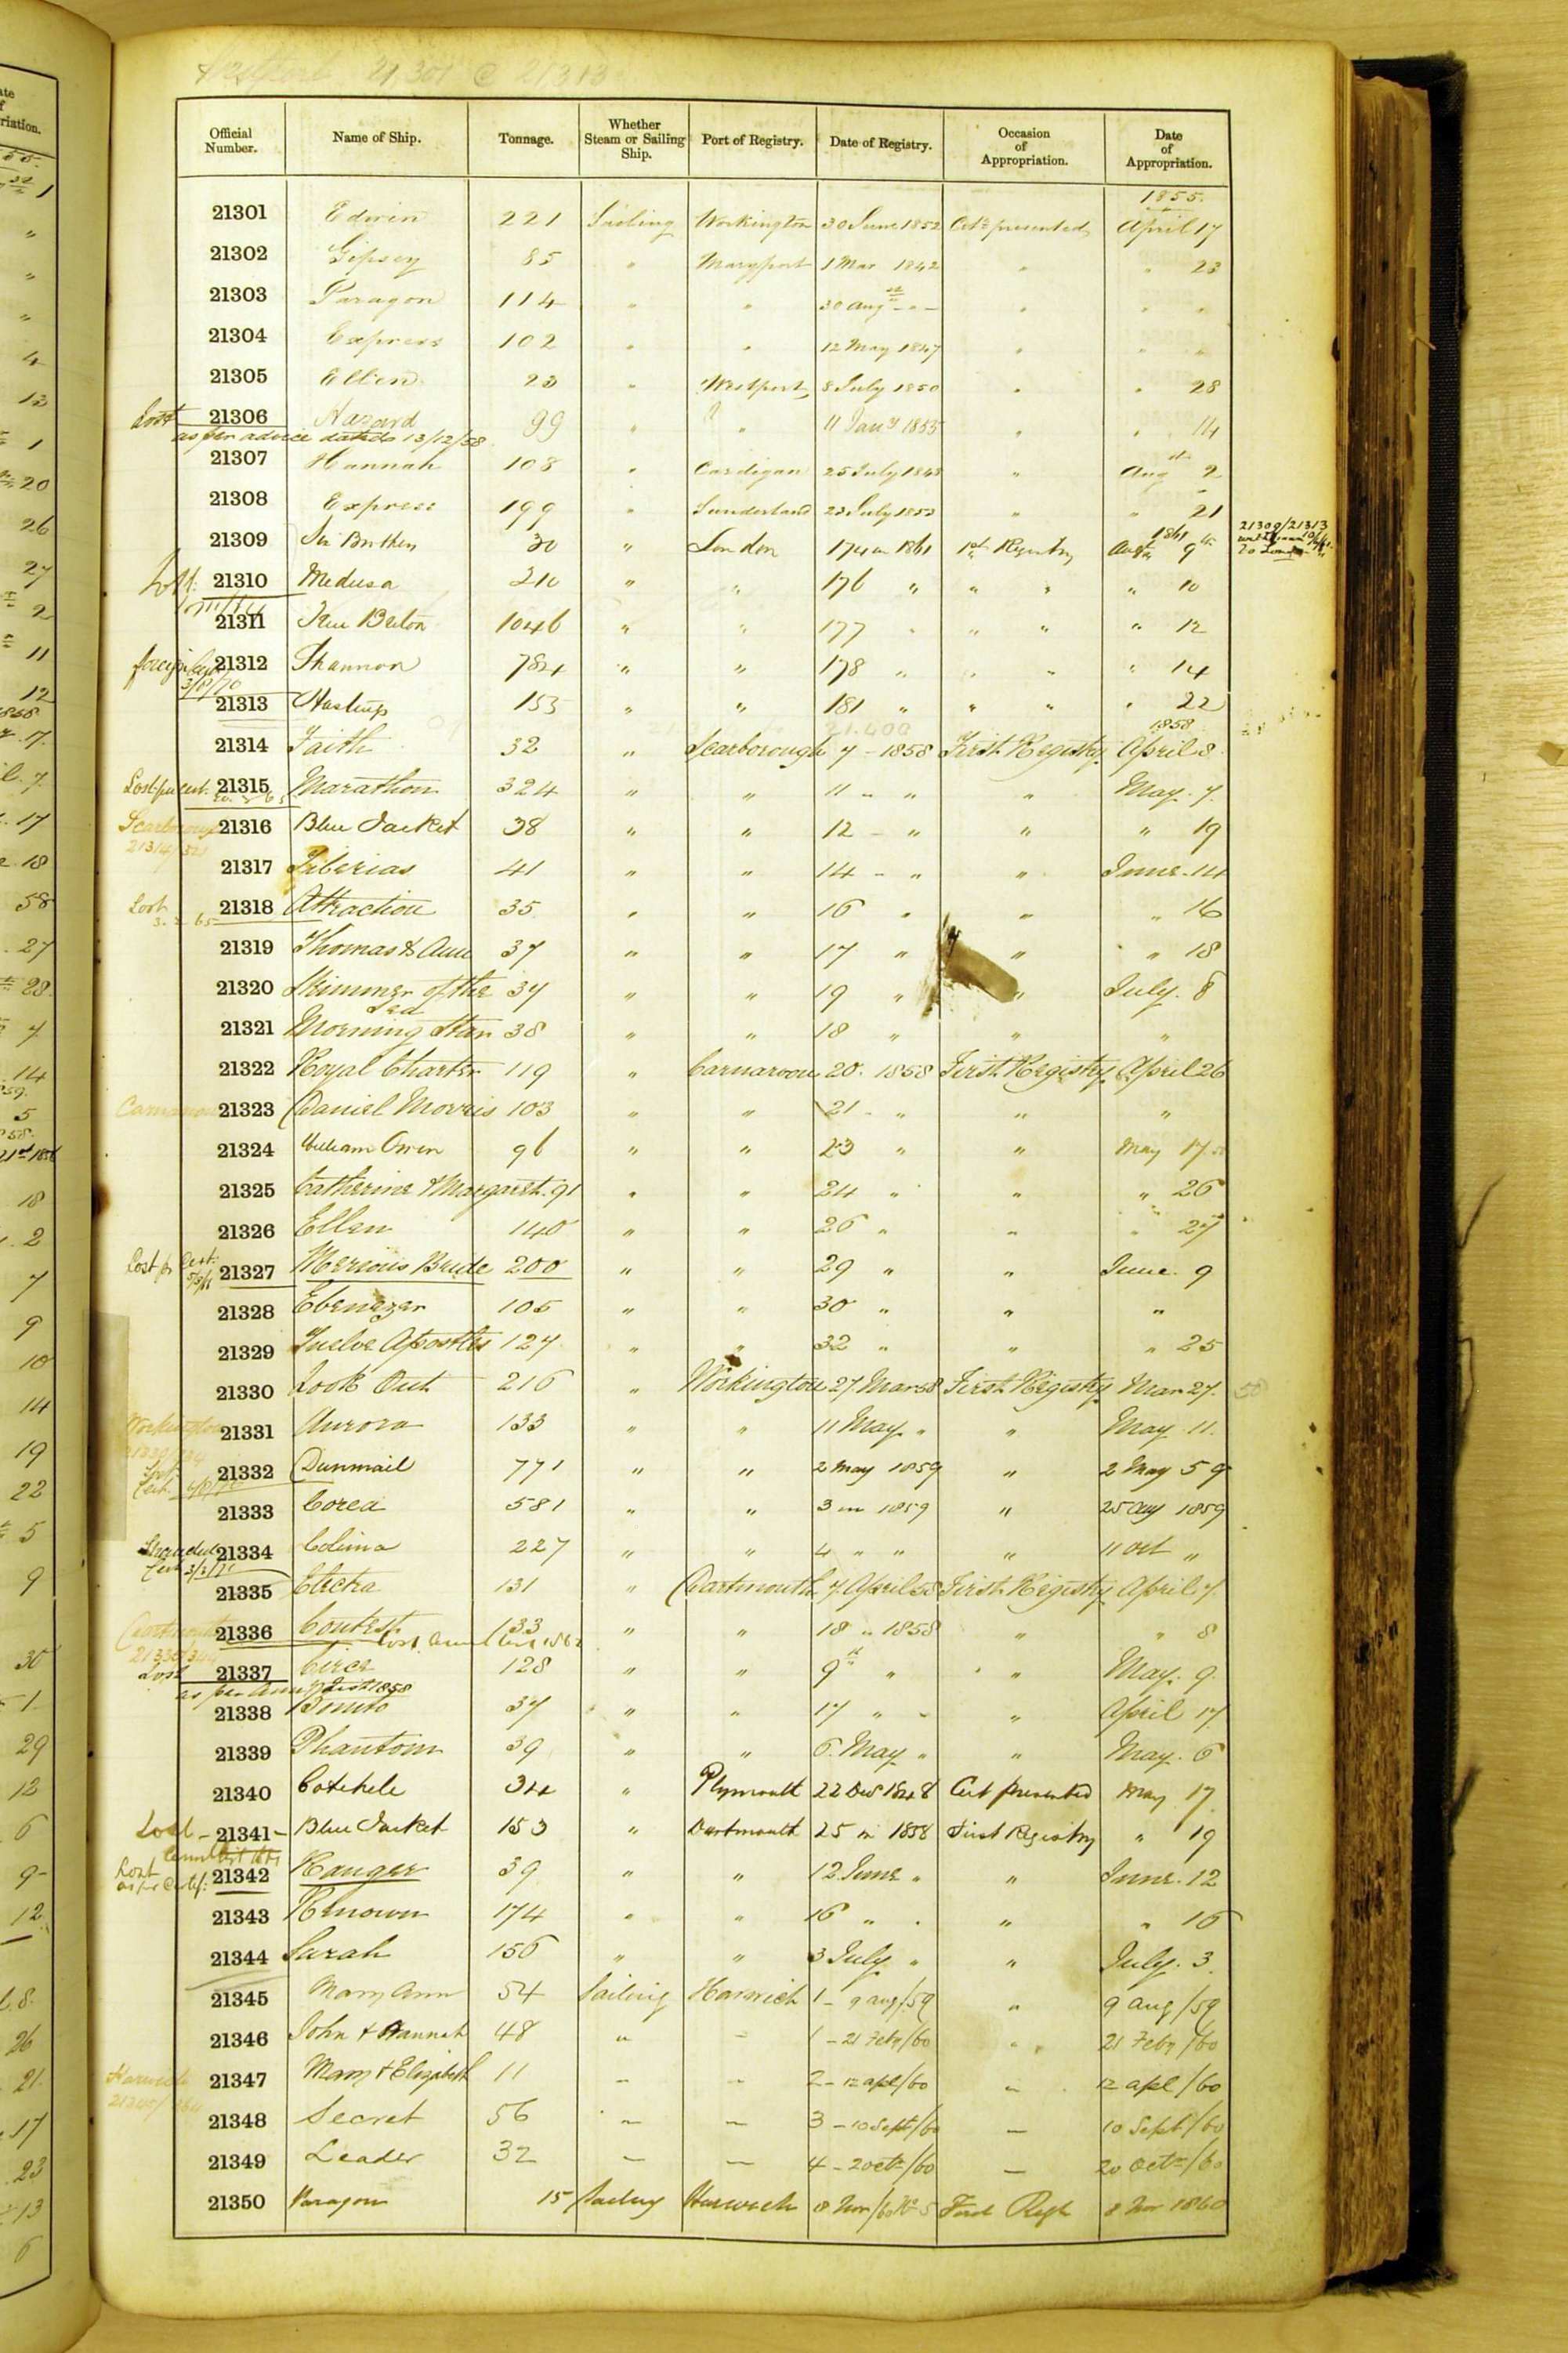 Official Number. Name of Ship. Tonnage. Whether Steam or Sailing Ship. Port of Registry. Date of Registry. Occasion of Appropriation. Date of Appropriation.
1855.
21301 Edwin 221 Sailing Workington 30 June 1852 Certe presented April 17
21302 Gipsey 85 " Maryport 1 Mar 1842 " " 23
21303 Paragon 114 " " 30 Aug " " "
21304 Express 102 " " 12 May 1847 " " "
21305 Ellen 23 " Westport 8 July 1850 " " 28
Lost 21306 Hazard 99 " " 11 Jany 1855 " " 14
as per advice dated 13/12/58
21307 Hannah 108 " Cardigan 25 July 1843 " Aug 2
21308 Express 199 " Sunderland 23 July 1853 " " 21
1861
21309 30 " London 174 in 1861 1st Registry Augt 9
Lost 21310 Medusa 210 " " 176 " " " " 10
21311 1046 " " 177 " " " " 12
foreign 21312 Shannon 784 " " 178 " " " " 14
3/8/70
21313 Hastings 153 " " 181 " " " " 22
1858
21314 Faith 32 " Scarborough 7 - 1858 First Registry April 8
Lost per cert. 21315 Marathon 324 " " 11 - " " May. 7.
Scarborough 21316 Blue Jacket 38 " " 12 - " " " 19
21317 Tiberias 41 " " 14 - " " June. 14
Lost 21318 Attraction 35 " " 16 " " " 16
3. 2. 65
21319 Thomas & Ann 37 " " 17 " " " 18
21320 Skimmer of the Sea 37 " " 19 " " July. 8
21321 Morning Star 38 " " 18 " " "
21322 Royal Charter 119 " Carnarvon 20. 1858 First Registry April 26
Carnarvon 21323 Daniel Morris 103 " " 21 - " " "
21324 William Owen 96 " " 23 " " May 17.
21325 Catherine & Margaret. 91 " " 24 " " " 26
21326 Ellen 140 " " 26 " " " 27
Lost pr Cert: 21327 Merious Bride 200 " " 29 " " June. 9
21328 Ebenezer 105 " " 30 " " "
21329 Twelve Apostles 127 " " 32 " " " 25
21330 Look Out 216 " Workington 27 Mar 58 First Registry Mar 27. 58
Workington 21331 Aurora 133 " " 11 May. " " May 11.
21332 Dunmail 771 " " 2 May 1859 " 2 May 59
21333 Corea 581 " " 3 in 1859 " 25 Aug 1859
Stranded 21334 Colima 227 " " 4 " " " 11 Oct "
Cert 3/3/71
21335 Electra 131 " Dartmouth 7. April 58 First Registry April 7.
Dartmouth 21336 Contest 133 " " 18 " 1858 " " 8
Lost 21337 Circe 128 " " 9th " " May. 9.
as per Annl List 1858
21338 37 " " 17 " " " April 17.
21339 Phantom 39 " " 6. May. " " May. 6
21340 Cotehele 34 " Plymouth 22 Dec 1848 Cert presented May 17.
Lost - 21341 - Blue Jacket 153 " Dartmouth 25 in 1858 First Registry " 19
Lost as pr Certif: 21342 Ranger 39 " " 12 June " " June. 12
21343 Renown 174 " " 16 " " " " 16
21344 Sarah 156 " " 3 July. " " July. 3.
21345 Mary Ann 54 Sailing Harwich 1 - 9 aug/.59 " 9 aug/59
21346 John & Hannah 48 " - 1 - 21 Feby/60 " 21 Feby/60
Harwich 21347 Mary & Elizabeth 11 - - 2 - 12 apl/60 - 12 apl/60
21348 Secret 56 - - 3 - 10 Sept/60 - 10 Sept/60
21349 Leader 32 - - 4 - 20 ctr/60 - 20 Octr/60
21350 Paragon 15 Sailing Harwich 8 Nov/60 No 5 First Regy 8 Nov 1860